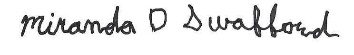 Miranda D Swafford